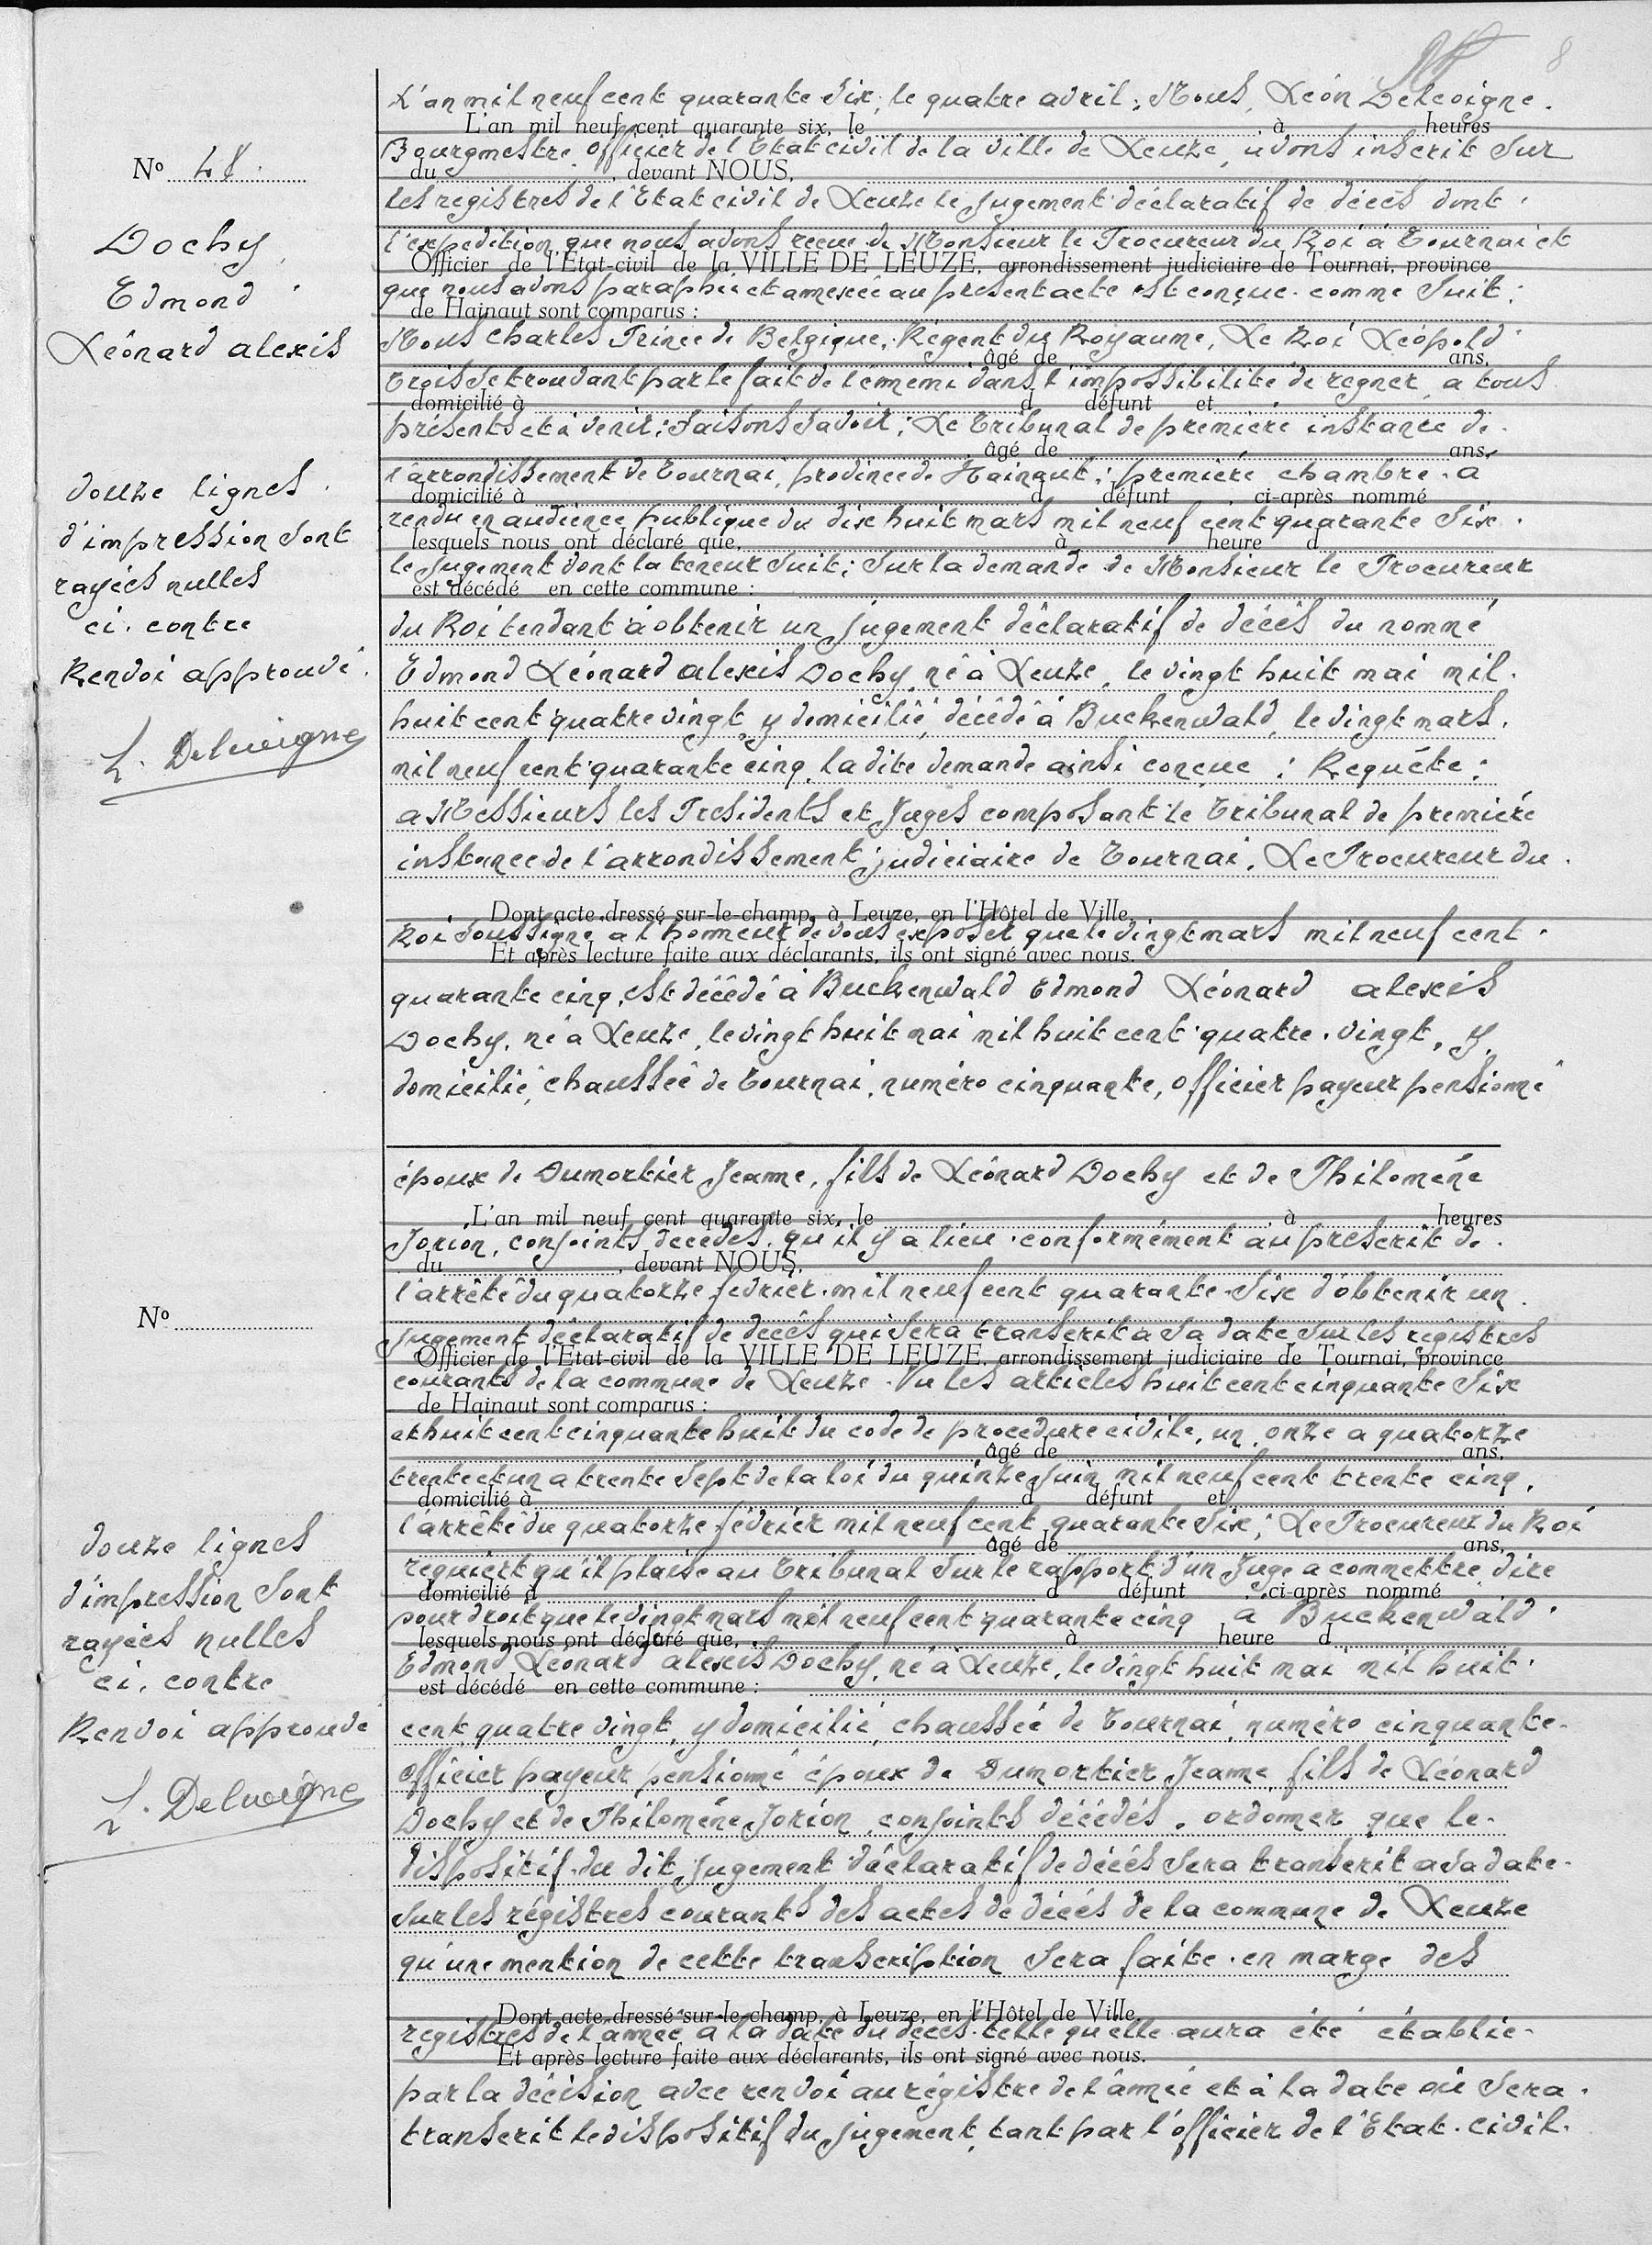 8
L'an mil neuf cent quarante six, le quatre avril, Nous, Léon Delcoigne.
L'an mil neuf cent quarante six, le à heures
Bourgmestre Officier de l'Etat civil de la ville de Leuze, avons inscrit sur
du , devant NOUS,
les registres de l'Etat civil de Leuze le jugement déclaratif de décès dont
l'expédition que nous avons recue de Monsieur le Procureur du Roi à Tournai et
Officier de l'Etat-civil de la VILLE DE LEUZE, arrondissement judiciaire de Tournai, province
que nous avons paraphée et annexée au présent acte est conçue comme suit:
de Hainaut sont comparus :
Nous Charles Prince de Belgique, Régent du Royaume, Le Roi Léopold
âgé de ans,
trois se trouvant par le fait de l'ennemi dans l'impossibilité de régner, a tous
domicilié à d défunt et
présents et à venir; faisons savoir; Le Tribunal de première instance de
âgé de ans,
l'arrondissement de Tournai, province de Hainaut; première chambre a
domicilié à d défunt , ci-après nommé
rendu en audience publique du dix huit mars mil neuf cent quarante six.
lesquels nous ont déclaré que, à heure d
le jugement dont la teneur suit; Sur la demande de Monsieur le Procureur
est décédé en cette commune :
du Roi tendant à obtenir un jugement déclaratif de décès du nommé
Edmond Léonard alexis Dochy, né à Leuze, le vingt huit mai mil
huit cent quatre vingt, y domicilié, décédé à Buckenwald, le vingt mars,
mil neuf cent quarante cinq, la dite demande ainsi conçue : Requête:
a Messieurs les Presidents et Juges composant le Tribunal de première
instance de l'arrondissement judiciaire de Tournai, Le Procureur du
Dont acte dressé sur-le-champ, à Leuze, en l'Hôtel de Ville,
Roi soussigné a l'honneur de vous exposer que le vingt mars mil neuf cent
Et après lecture faite aux déclarants, ils ont signé avec nous.
quarante cinq, est décédé à Buckenwald Edmond Léonard alexis
Dochy, né à Leuze, le vingt huit mai mil huit cent quatre vingt, y
domicilié, chaussée de Tournai, numéro cinquante, officier payeur pensionné
N° 48.
Dochy,
Edmond
Léonard alexis
douze lignes
d'impression sont
rayées nulles
ci. contre
Renvoi approuvé.
L. Delcoigne
époux de Dumortier Jeanne, fils de Léonard Dochy et de Philomène
L'an mil neuf cent quarante six, le à heures
Jorion, conjoints décédés, qu'il y a lieu conformément au prescrit de
du , devant NOUS,
l'arrêté du quatorze février mil neuf cent quarante six d'obtenir un
jugement déclaratif de decès qui sera transcrit à sa date sur les régistres
Officier de l'Etat-civil de la VILLE DE LEUZE, arrondissement judiciaire de Tournai, province
courants de la commune de Leuze. Vu les articles huit cent cinquante six
de Hainaut sont comparus :
et huit cent cinquante huit du code de procedure civile, un, onze a quatorze
âgé de ans,
trente et un a trente sept de la loi du quinze juin mil neuf cent trente cinq,
domicilié à d défunt et
l'arrêté du quatorze février mil neuf cent quarante six; Le Procureur du Roi
âgé de ans,
requiert qu'il plaise au Tribunal sur le rapport d'un Juge a commettre dire
domicilié à d défunt , ci-après nommé
pour droit que le vingt mars mil neuf cent quarante cinq à Buckenwald
lesquels nous ont déclaré que, à heure d
Edmond Léonard alexis Dochy, né à Leuze, le vingt huit mai mil huit
est décédé en cette commune :
cent quatre vingt, y domicilié, chaussée de Tournai, numéro cinquante
officier payeur pensionné époux de Dumortier Jeanne, fils de Léonard
Dochy et de Philomène Jorion, conjoints décédés, ordonner que le
dispositif du dit jugement déclaratif de décès sera transcrit a sa date
sur les régistres courants des actes de décès de la commune de Leuze
qu'une mention de cette transcription sera faite en marge des
Dont acte dressé sur-le-champ, à Leuze, en l'Hôtel de Ville,
registres de l'année à la date du décès telle qu'elle aura été établie
Et après lecture faite aux déclarants, ils ont signé avec nous.
par la décision avec renvoi au régistre de l'année et à la date où sera
transcrit le dispositif du jugement, tant par l'officier de l'Etat. civil.
N°
douze lignes
d'impression sont
rayées nulles
ci. contre
Renvoi approuvé
L. Delcoigne